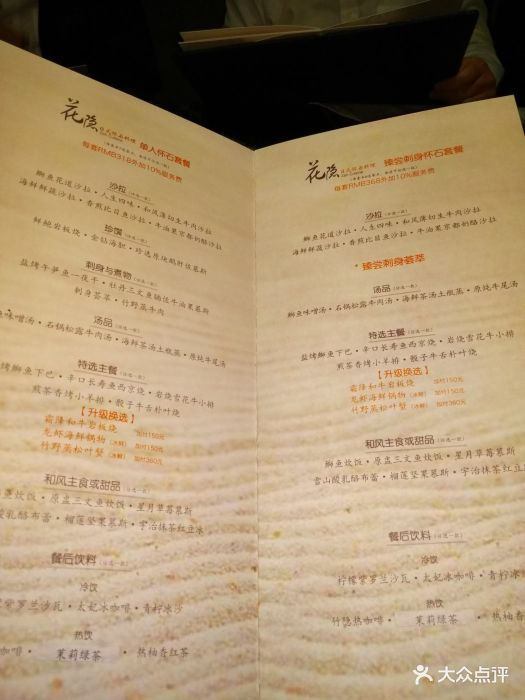 花隐
日式怀石料理 单人怀石套餐
每套RMB318外加10%服务费
沙拉(任选一款)
鰤鱼花道沙拉·人生四味·和风薄切生牛肉沙拉
海鲜鲜蔬沙拉·香煎比目鱼沙拉·牛油果京都奶酪沙拉
珍馔(任选一款)
鲜鲍岩板烧·金钻海胆·珍选原块鹅肝伎慕斯
刺身与煮物(任选一款)
盐烤午笋鱼一夜干·牡丹三文鱼腩佐牛油果慕斯
刺身荟萃·竹野蒸牛肉
汤品(任选一款)
鱼味噌汤·石锅松露牛肉汤·海鲜茶汤土瓶蒸·原炖牛尾汤
特选主餐(任选一款)
盐烤鰤鱼下巴·辛口长寿鱼西京烧·岩烧雪花牛小排
煎茶香烤小羊排·骰子牛舌朴叶烧
【升级换选】
霜降和牛岩板烧 加付150元
龙虾海鲜锅物(冰鲜) 加付150元
竹野蒸松叶蟹(冰鲜) 加付360元
和风主食或甜品(任选一款)
鱼炊饭·原盅三文鱼炊饭·星月草莓慕斯
酸乳酪布蕾·榴莲坚果慕斯·宇治抹茶红豆冰
餐后饮料(任选一款)
冷饮
紫罗兰沙瓦·太妃冰咖啡·青柠冰沙
热饮
咖啡·茉莉绿茶·热柚香红茶
花隐
日式怀石料理 臻尝刺身怀石套餐
每套RMB368外加10%服务费
沙拉(任选一款)
鰤鱼花道沙拉·人生四味·和风薄切生牛肉沙拉
海鲜鲜蔬沙拉·香煎比目鱼沙拉·牛油果京都奶酪沙拉
·臻尝刺身荟萃
汤品(任选一款)
鰤鱼味噌汤·石锅松露牛肉汤·海鲜茶汤土瓶蒸·原炖牛尾汤
特选主餐(任选一款)
盐烤鰤鱼下巴·辛口长寿鱼西京烧·岩烧雪花牛小排
煎茶香烤小羊排·骰子牛舌朴叶烧
【升级换选】
霜降和牛岩板烧 加付150元
龙虾海鲜锅物(冰鲜) 加付150元
竹野蒸松叶蟹(冰鲜) 加付360元
和风主食或甜品(任选一款)
鰤鱼炊饭·原盅三文鱼炊饭·星月草莓慕斯
雪山酸乳酪布蕾·榴莲坚果慕斯·宇治抹茶红豆冰
餐后饮料(任选一款)
冷饮
柠檬紫罗兰沙瓦·太妃冰咖啡·青柠冰沙
热饮
竹隐热咖啡·茉莉绿茶·热柚香红
大众点评